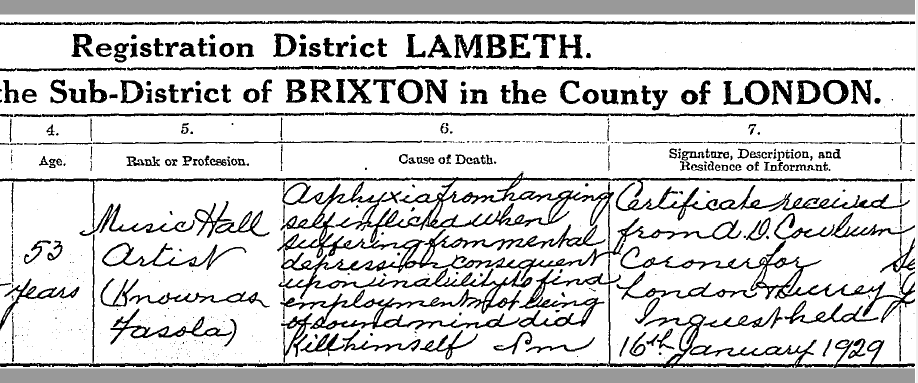 Registration District LAMBETH.
the Sub-District of BRIXTON in the County of LONDON.
4. 5. 6. 7.
Age. Rank or Profession. Cause of Death. Signature, Description, and Residence of Informant.
53
years
Music Hall
Artist
(Known as
Fasola)
Asphyxia from hanging
self inflicted when
suffering from mental
depression consequent
upon inability to find
employment not being
of sound mind did
Kill himself P m
Certificate received
from A. D. Cowburn
Coroner for
London & Surrey
Inquest held
16th January 1929